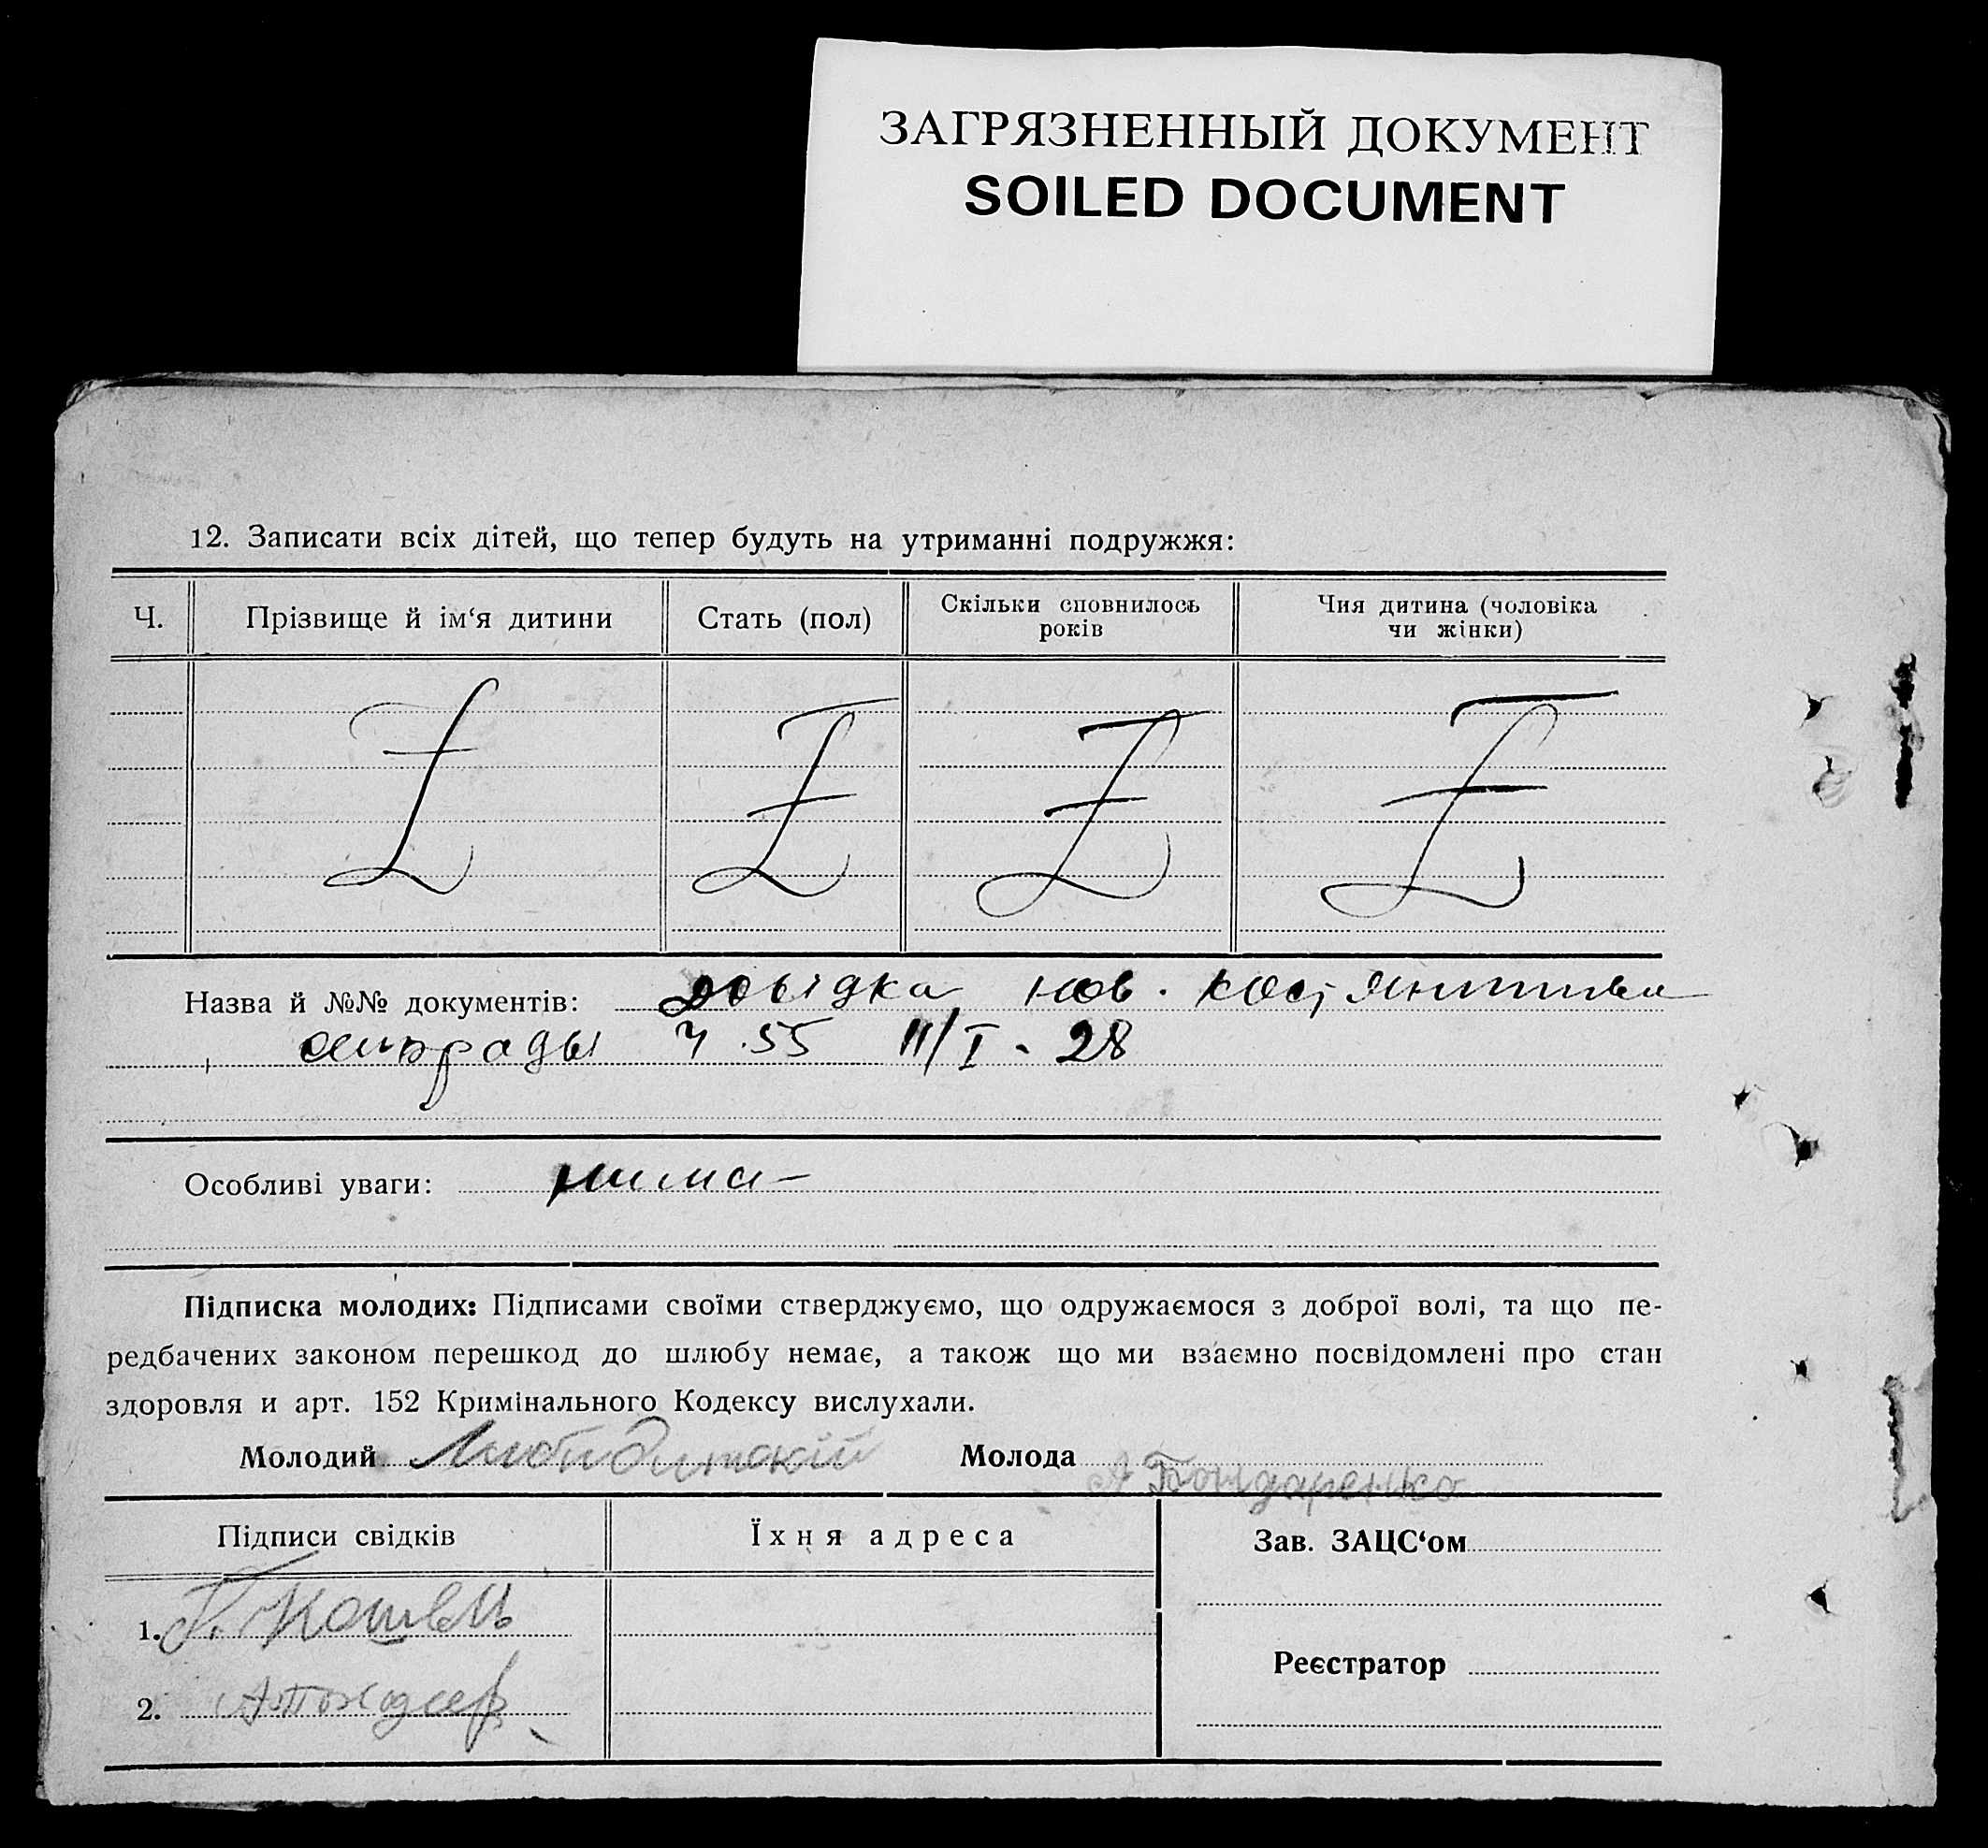 ЗАГРЯЗНЕННЫЙ ДОКУМЕНТ
SOILED DOCUMENT
12. Записати всіх дітей, що тепер будуть на утриманні подружжя:
Ч. Прізвище й ім‘я дитини Стать (пол) Скільки сповнилось років Чия дитина (чоловіка чи жінки)
Z Z Z Z
Назва й №№ документів: довідка нов.
Ч. 55 11/I - 28
Особливі уваги: нима
Підписка молодих: Підписами своїми стверджуємо, що одружаємося з доброї волі, та що пе-
редбачених законом перешкод до шлюбу немає, а також що ми взаємно посвідомлені про стан
здоровля и арт. 152 Кримінального Кодексу вислухали.
Молодий Молода А Бондаренко
Підписи свідків Їхня адреса Зав. ЗАЦС‘ом
1. Г. Кошель
Реєстратор
2.